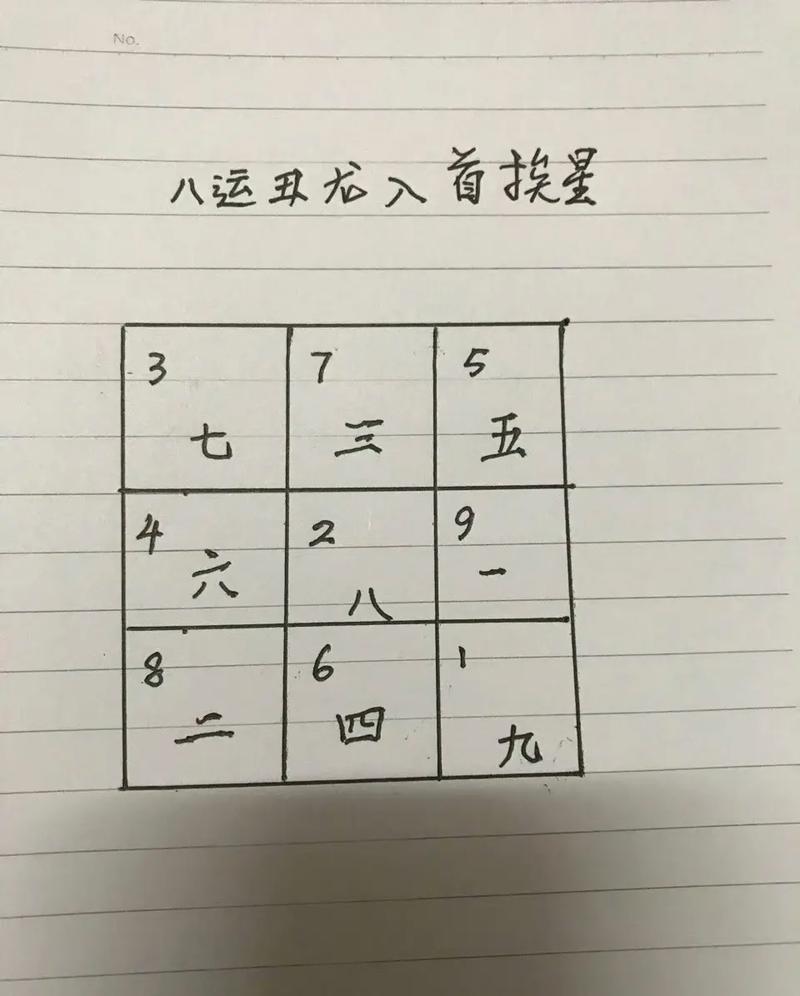 No.
八运丑龙入首挨星
3 7 5
七 三 五
4 2 9
六 八 一
8 6 1
二 四 九